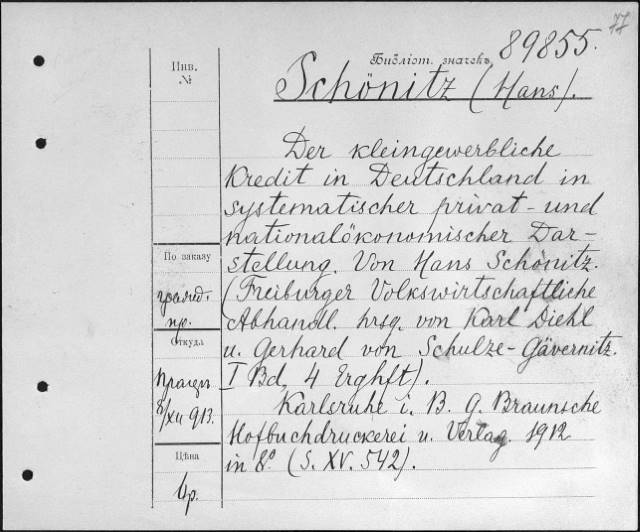 77
Библіот. значекъ 89855.
Инв.
№
Schönitz (Hans).
Der kleingewerbliche
Kredit in Deutschland in
systematischer privat- und
nationalökonomischer Dar-
stellung. Von Hans Schönitz.
(Freiburger Volkswirtschaftliche
Abhandl. hrsg. von Karl Diehl
u. Gerhard von Schulze-Gävernitz.
I Bd, 4 Erghft).
Karlsruhe i. B. G. Braunsche
Hofbuchdruckerei u. Verlag. 1912
in 8º. (S. XV. 542).
По заказу
пр.
Откуда
8/XII 913.
Цѣна
4р.